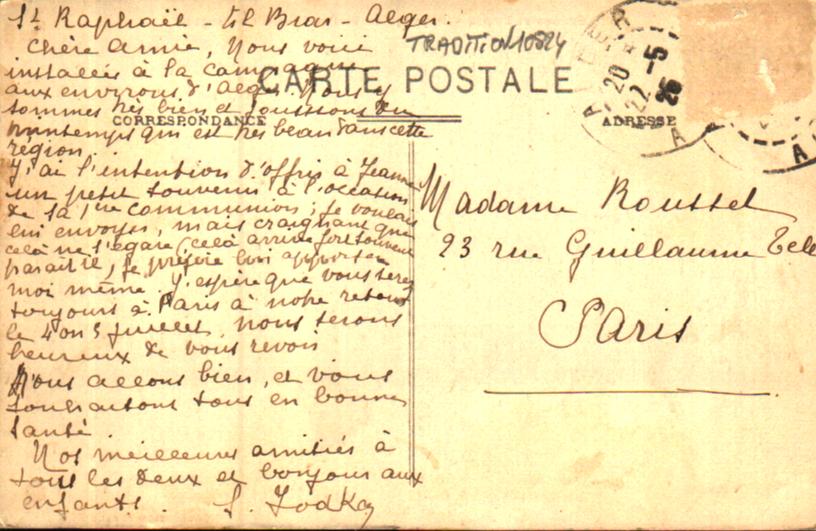 St Raphaël - El Biar - Alger.
Chère Amie, Nous voici
installés à la campagne
aux environs d'Alger. Nous y
sommes très bien et jouissons du
printemps qui est très beau dans cette
région.
J'ai l'intention d'offrir à Jeanne
un petit souvenir à l'occasion
de sa 1re communion; je voulais
lui envoyer, mais craignant que
celà ne s'égare (celà arrive fort souvent
paraît il, je préfère lui apporter
moi même. J'espère que vous serez
toujours à Paris à notre retour
le 4 ou 5 juillet, nous serons
heureux de vous revoir
Nous allons bien, et vous
souhaitons tous en bonne
santé.
Nos meilleures amitiés à
tous les deux et bonjour aux
enfants.
TRADITION10824
CARTE POSTALE
CORRESPONDANCE
ADRESSE
ALGER
20
22 - 5
26
A
Madame Roussel
23 rue Guillaume Tell
Paris